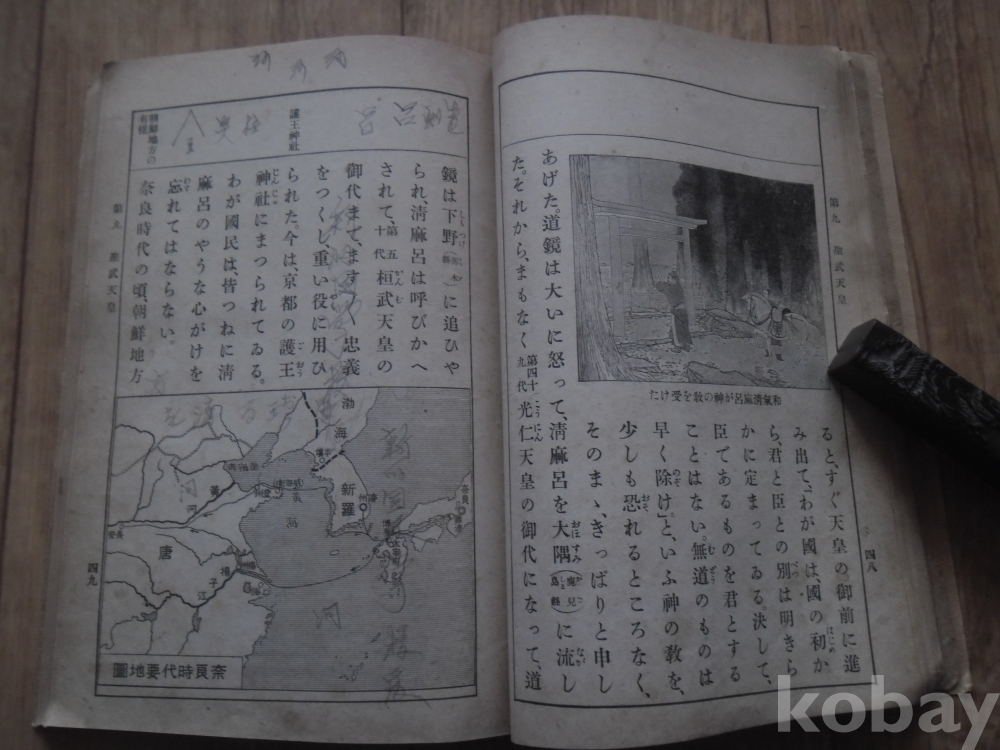 第九 聖武天皇
四八
ると、すぐ天皇の御前に進
み出て、「わが國は、國の初か
ら、君と臣との別は明きら
かに定まってゐる。決して、
臣であるものを君とする
ことはない。無道のものは
早く除け。」と、いふ神の教を、
少しも恐れるところなく、
そのまゝ、きっぱりと申し
あげた。道鏡は大いに怒って、淸麻呂を大隅(鹿兒島縣)に流し
た。それから、まもなく第四十九代光仁天皇の御代になって、道
和氣淸麻呂が神の敎を受けた
護王神社
朝鮮地方の有樣
鏡は下野(栃木縣)に追ひや
られ、淸麻呂は呼びかへ
されて、第五十代桓武天皇の
御代まで、ます〳〵忠義
をつくし、重い役に用ひ
られた。今は、京都の護王
神社にまつられてゐる。
わが國民は、皆つねに淸
麻呂のやうな心がけを
忘れてはならない。
奈良時代の頃、朝鮮地方
第九 聖武天皇
四九
渤海
新羅
黃河
唐
揚子江
長安
奈良
奈良時代要地圖
kobay